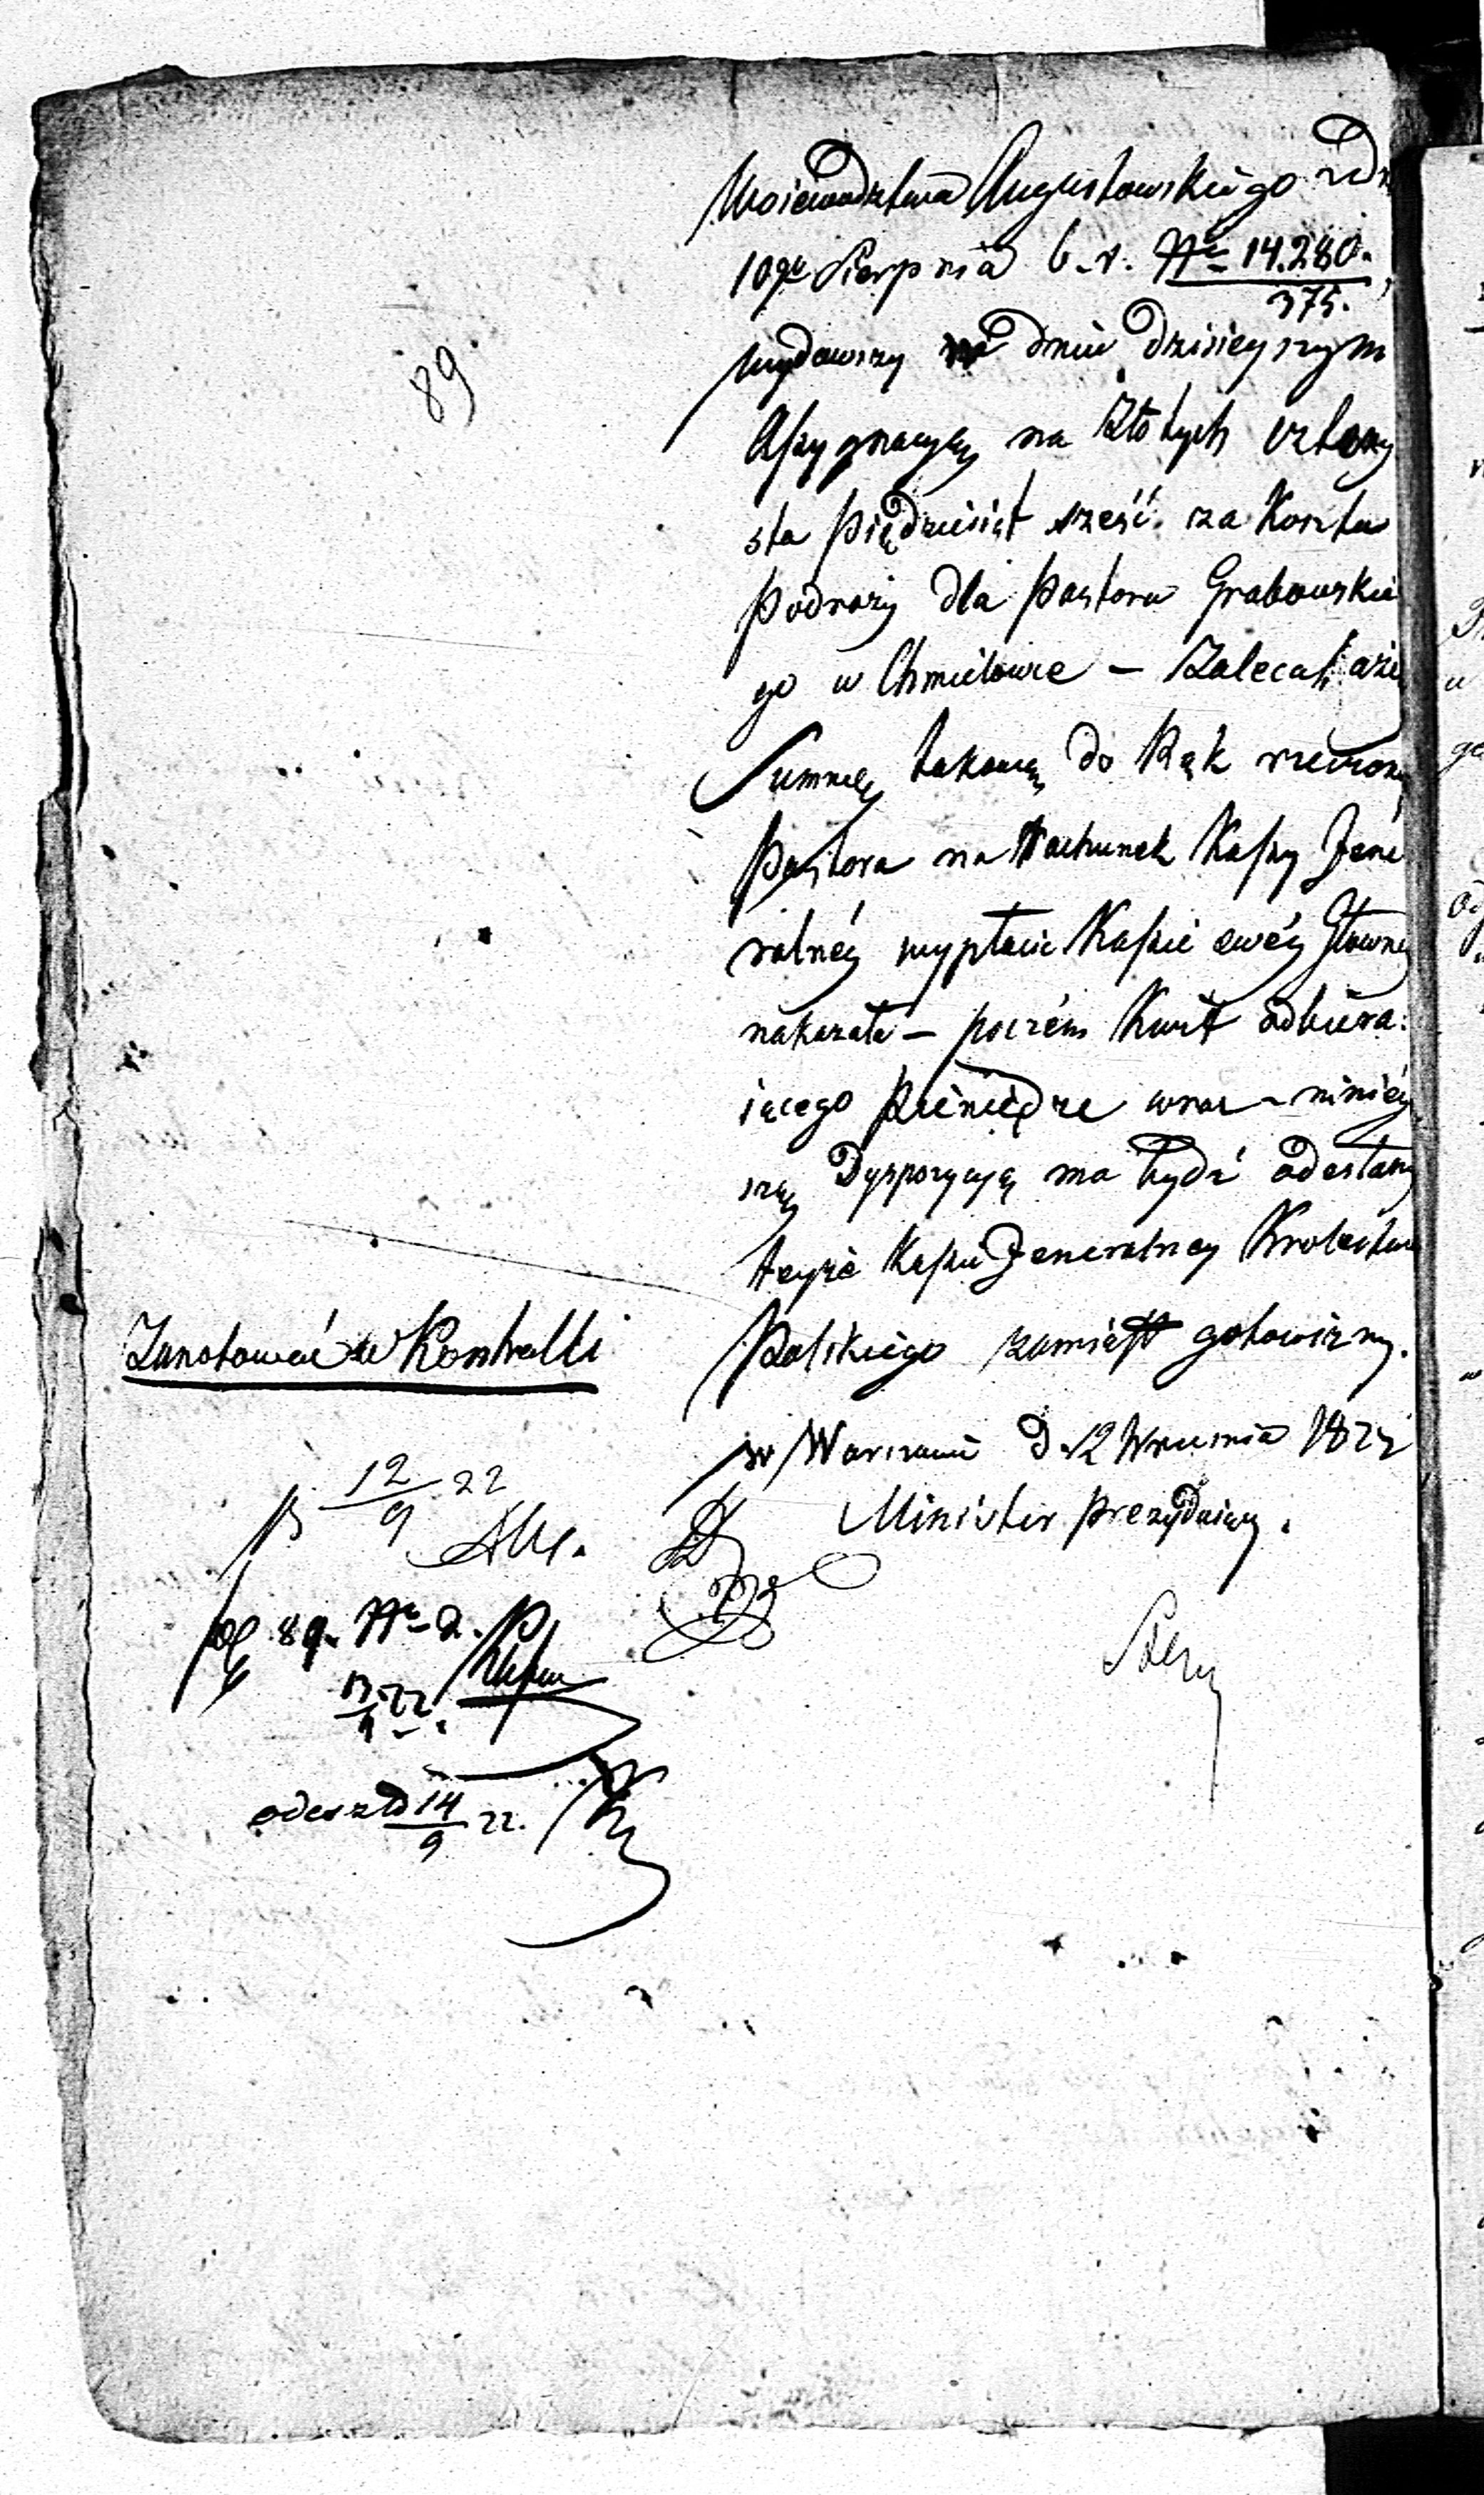 Woiewodztwa Augustowskiego z dn
10go Sierpnia b. r. No 14.280.
375.
wydawszy w dniu dzisieyszym
Assygnacyą na Złotych cztery
sta piędziesiąt sześć. za Koszta
Podroży dla Pastora Grabowskie
go w Chmielowce — Zaleca, aże
Summę takową do Rąk rzeczone
Pastora na Rachunek Kassy Jene
ralnéy wypłacić Kassie swéy Głowne
nakazała — poczém Kwit odbiera:
iącego Pieniędze wraz z ninieу
szą Dyspozycyą ma bydź odesłany
teyże Kassie Jeneralney Krolestwa
Polskiego zamiast gotowizny.
w Warszawie d. 12 Września 1822
Minister Prezyduiący.
89
Zanotować w Kontrolli
12/9 22
fol 89. No 2.
13/9 22.
odeszło 14/9 22.